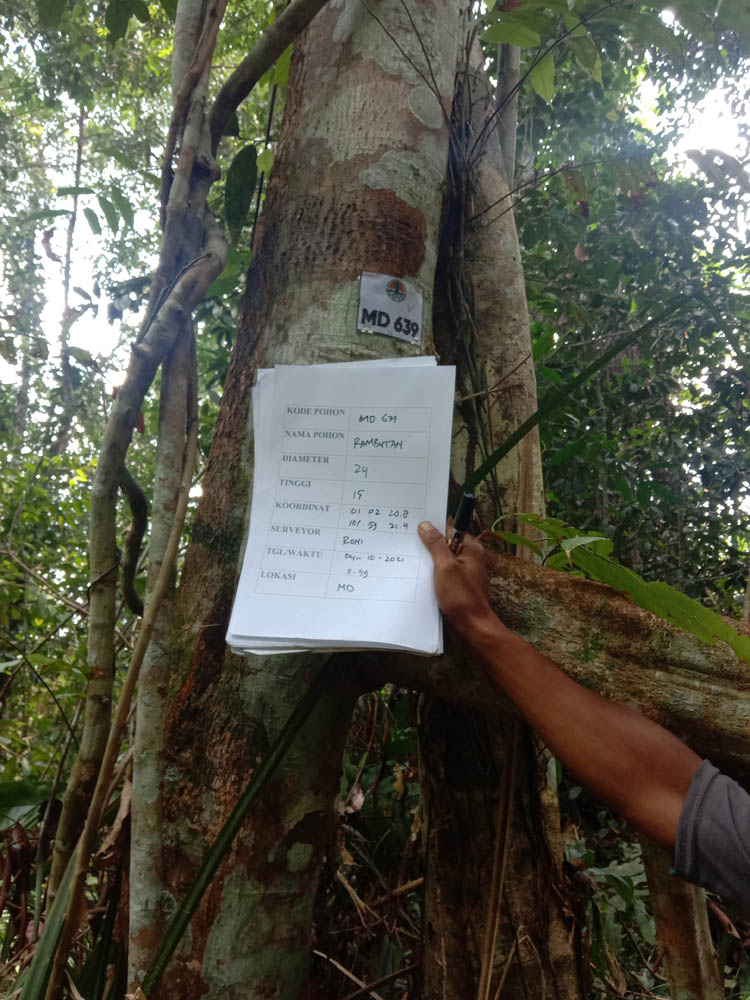 MD 639
KODE POHON MD 639
NAMA POHON RAMBUTAN
DIAMETER 24
TINGGI 15
KOORDINAT 01 02 20.8
101 59 21.4
SURVEYOR RONI
TGL/WAKTU 04-10-2021
LOKASI K.49
MD